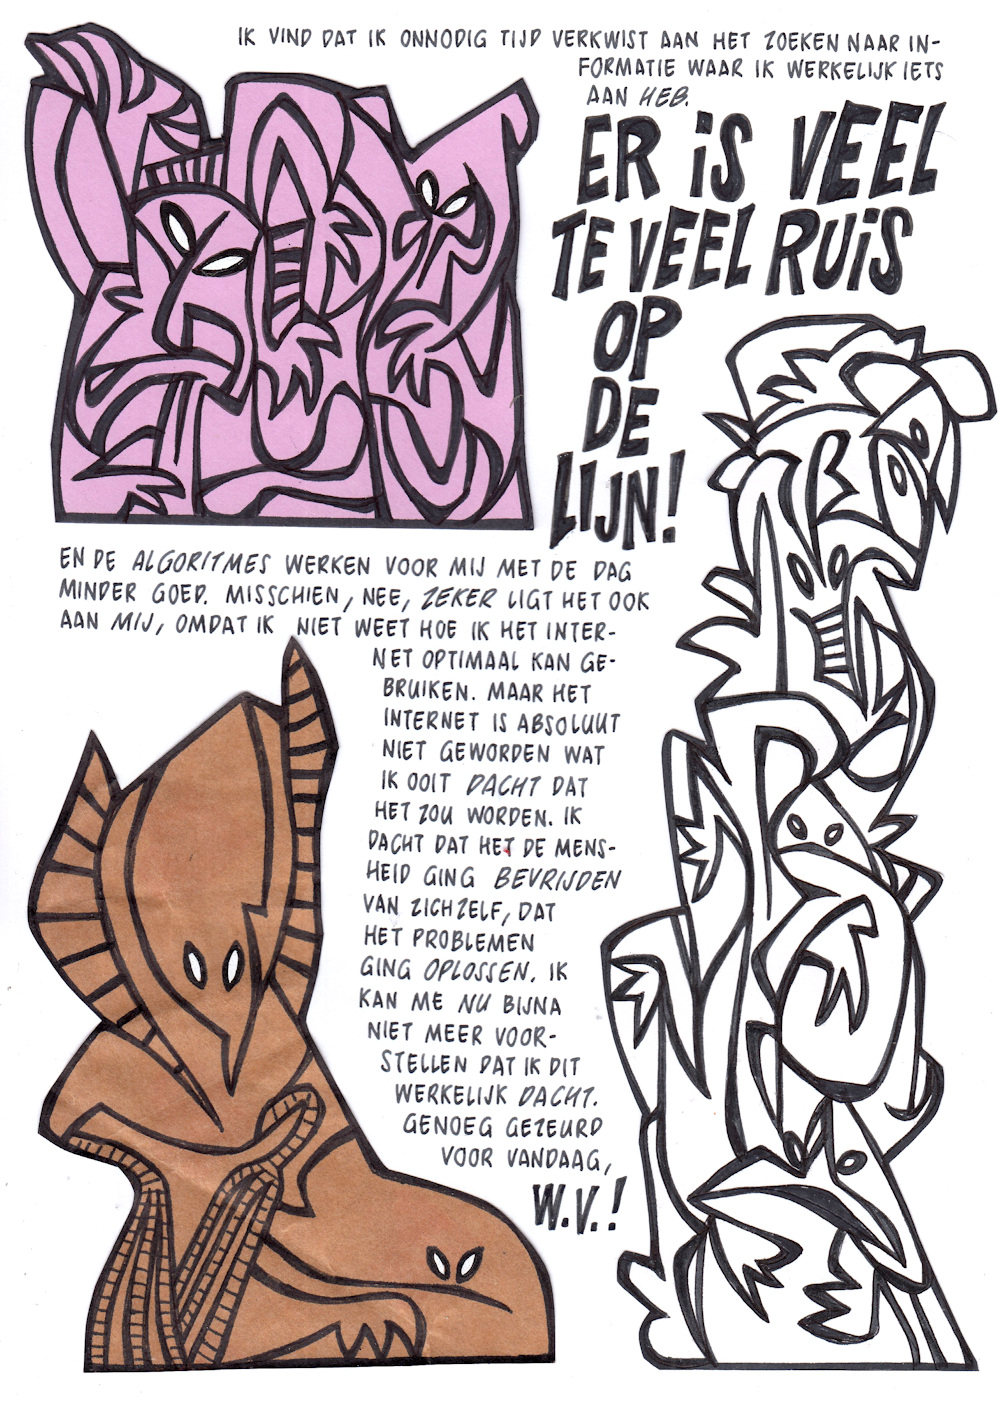 IK VIND DAT IK ONNODIG TIJD VERKWIST AAN HET ZOEKEN NAAR IN-
FORMATIE WAAR IK WERKELIJK IETS
AAN HEB.
ER iS VEEL
TE VEEL RUiS
OP
DE
LIJN!
EN DE ALGORITMES WERKEN VOOR MIJ MET DE DAG
MINDER GOED. MISSCHIEN, NEE, ZEKER LIGT HET OOK
AAN MIJ, OMDAT IK NIET WEET HOE IK HET INTER-
NET OPTIMAAL KAN GE-
BRUIKEN. MAAR HET
INTERNET IS ABSOLUUT
NIET GEWORDEN WAT
IK OOIT DACHT DAT
HET ZOU WORDEN. IK
DACHT DAT HET DE MENS-
HEID GING BEVRIJDEN
VAN ZICHZELF, DAT
HET PROBLEMEN
GING OPLOSSEN. IK
KAN ME NU BIJNA
NIET MEER VOOR-
STELLEN DAT IK DIT
WERKELIJK DACHT.
GENOEG GEZEURD
VOOR VANDAAG,
W.V.!